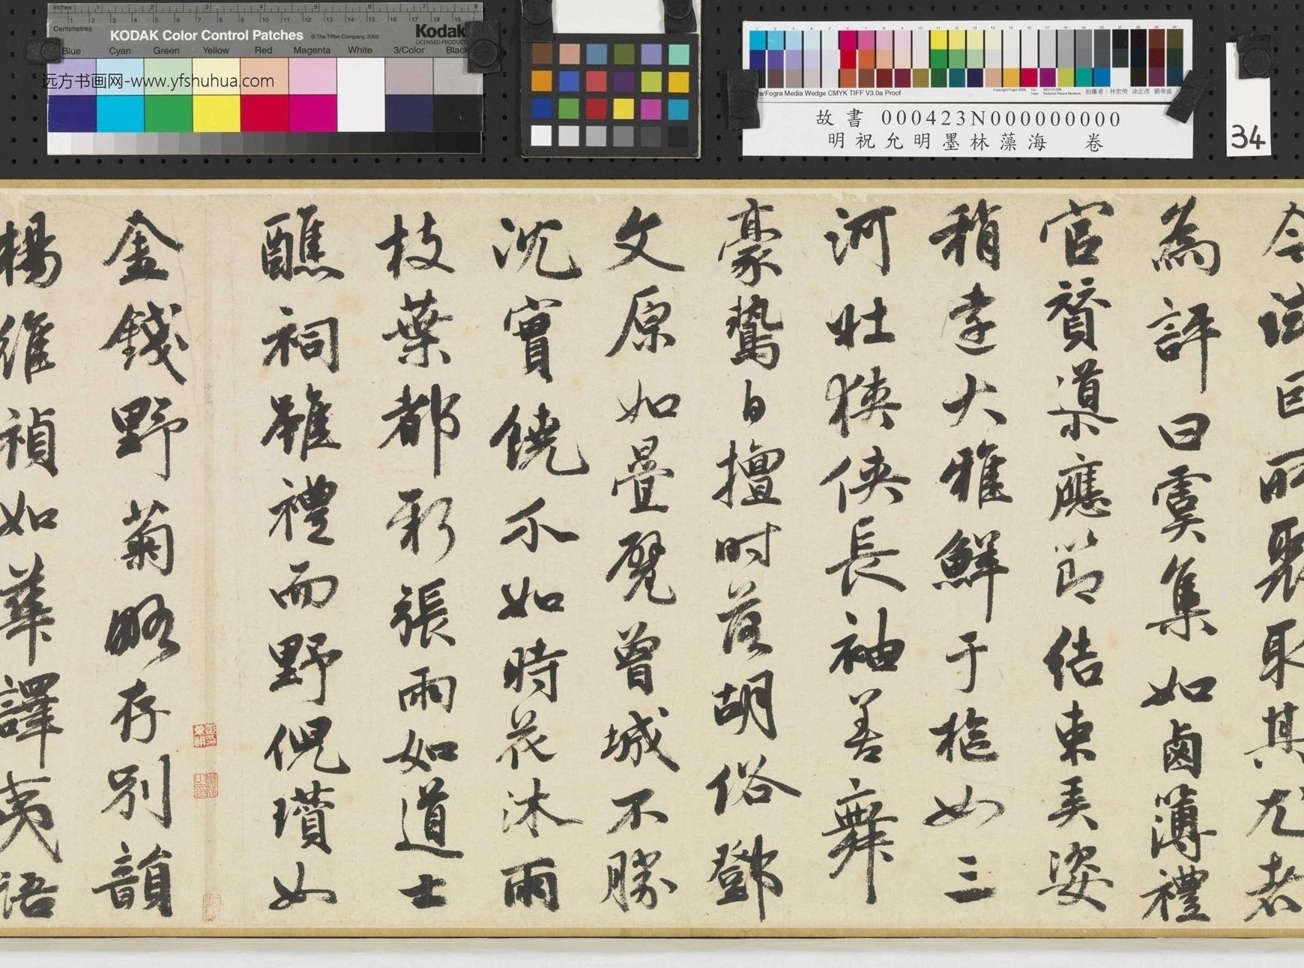 Inches
Centimetres
KODAK Color Control Patches
© The Tiffen Company, 2000
Kodak
LICENSED PRODUCT
Blue Cyan Green Yellow Red Magenta White 3/Color Black
远方书画网-www.yfshuhua.com
ra/Fogra Media Wedge CMYK TIFF V3.0a Proof
故書 000423N000000000
明祝允明墨林藻海 卷
34
其尤者
為評曰虞集如鹵簿禮
官贊導應節結束美姿
稍遠大雅鮮于樞如三
河壯狹俠長袖善舞
豪鷙自擅時落胡俗鄧
文原如疊甓曾城不勝
沈實饒介如時花沐雨
枝葉都新張雨如道士
醮祠雖禮而野倪瓚如
金錢野菊略存別韻
楊維禎如華譯夷語